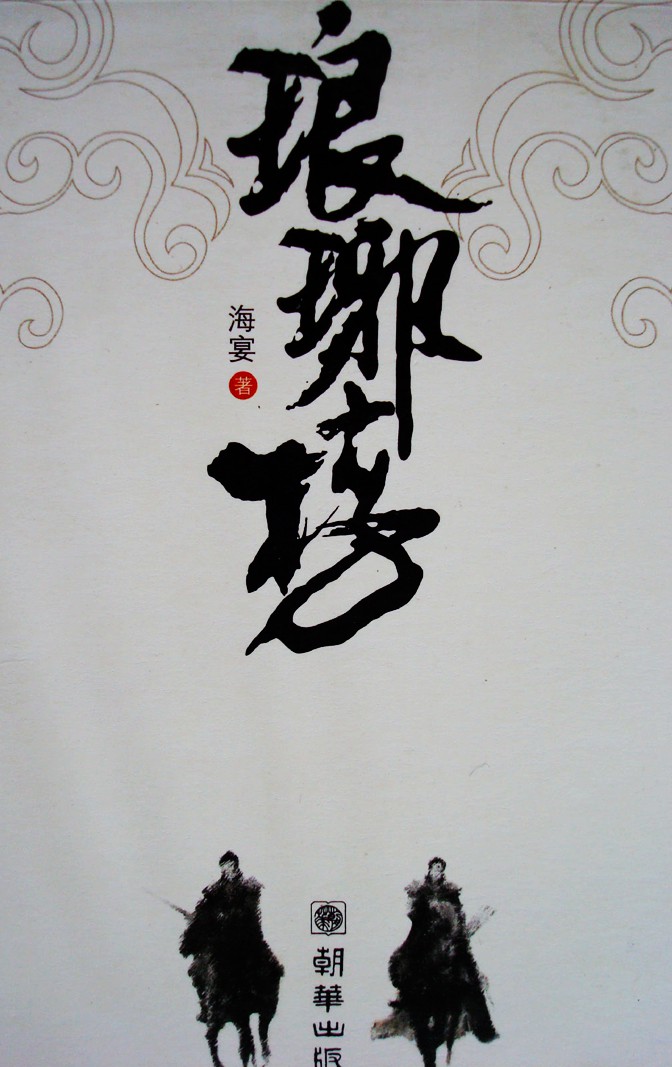 琅琊榜
海宴
著
朝華出版